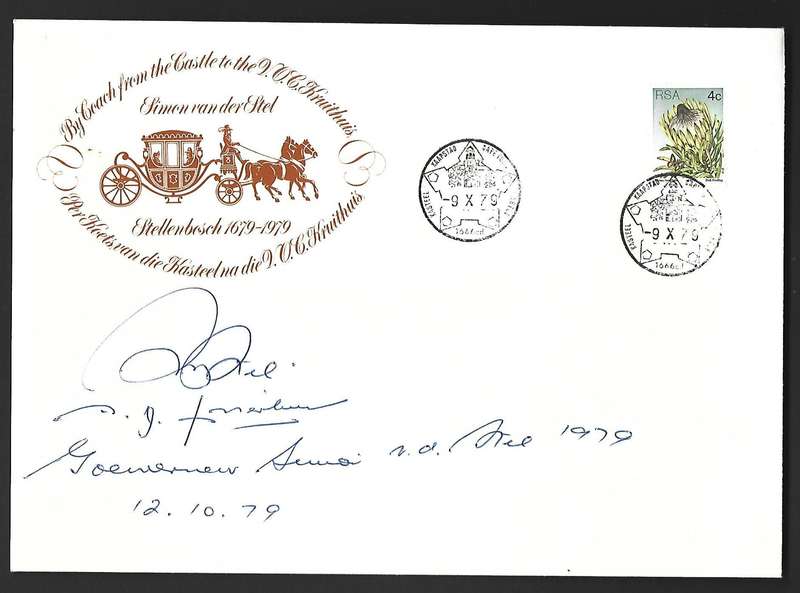 By Coach from the Castle to the V.O.C. Kruithuis.
Simon van der Stel
Stellenbosch 1679-1979
Per Koets van die Kasteel na die V.O.C. Kruithuis.
RSA 4c
KAAPSTAD
CAPE TOWN
KASTEEL
CASTLE
-9 X 79
1666
KAAPSTAD
KASTEEL
-9 X 79
1666
Goewerneur Simon v.d. Stel 1979
12.10.79